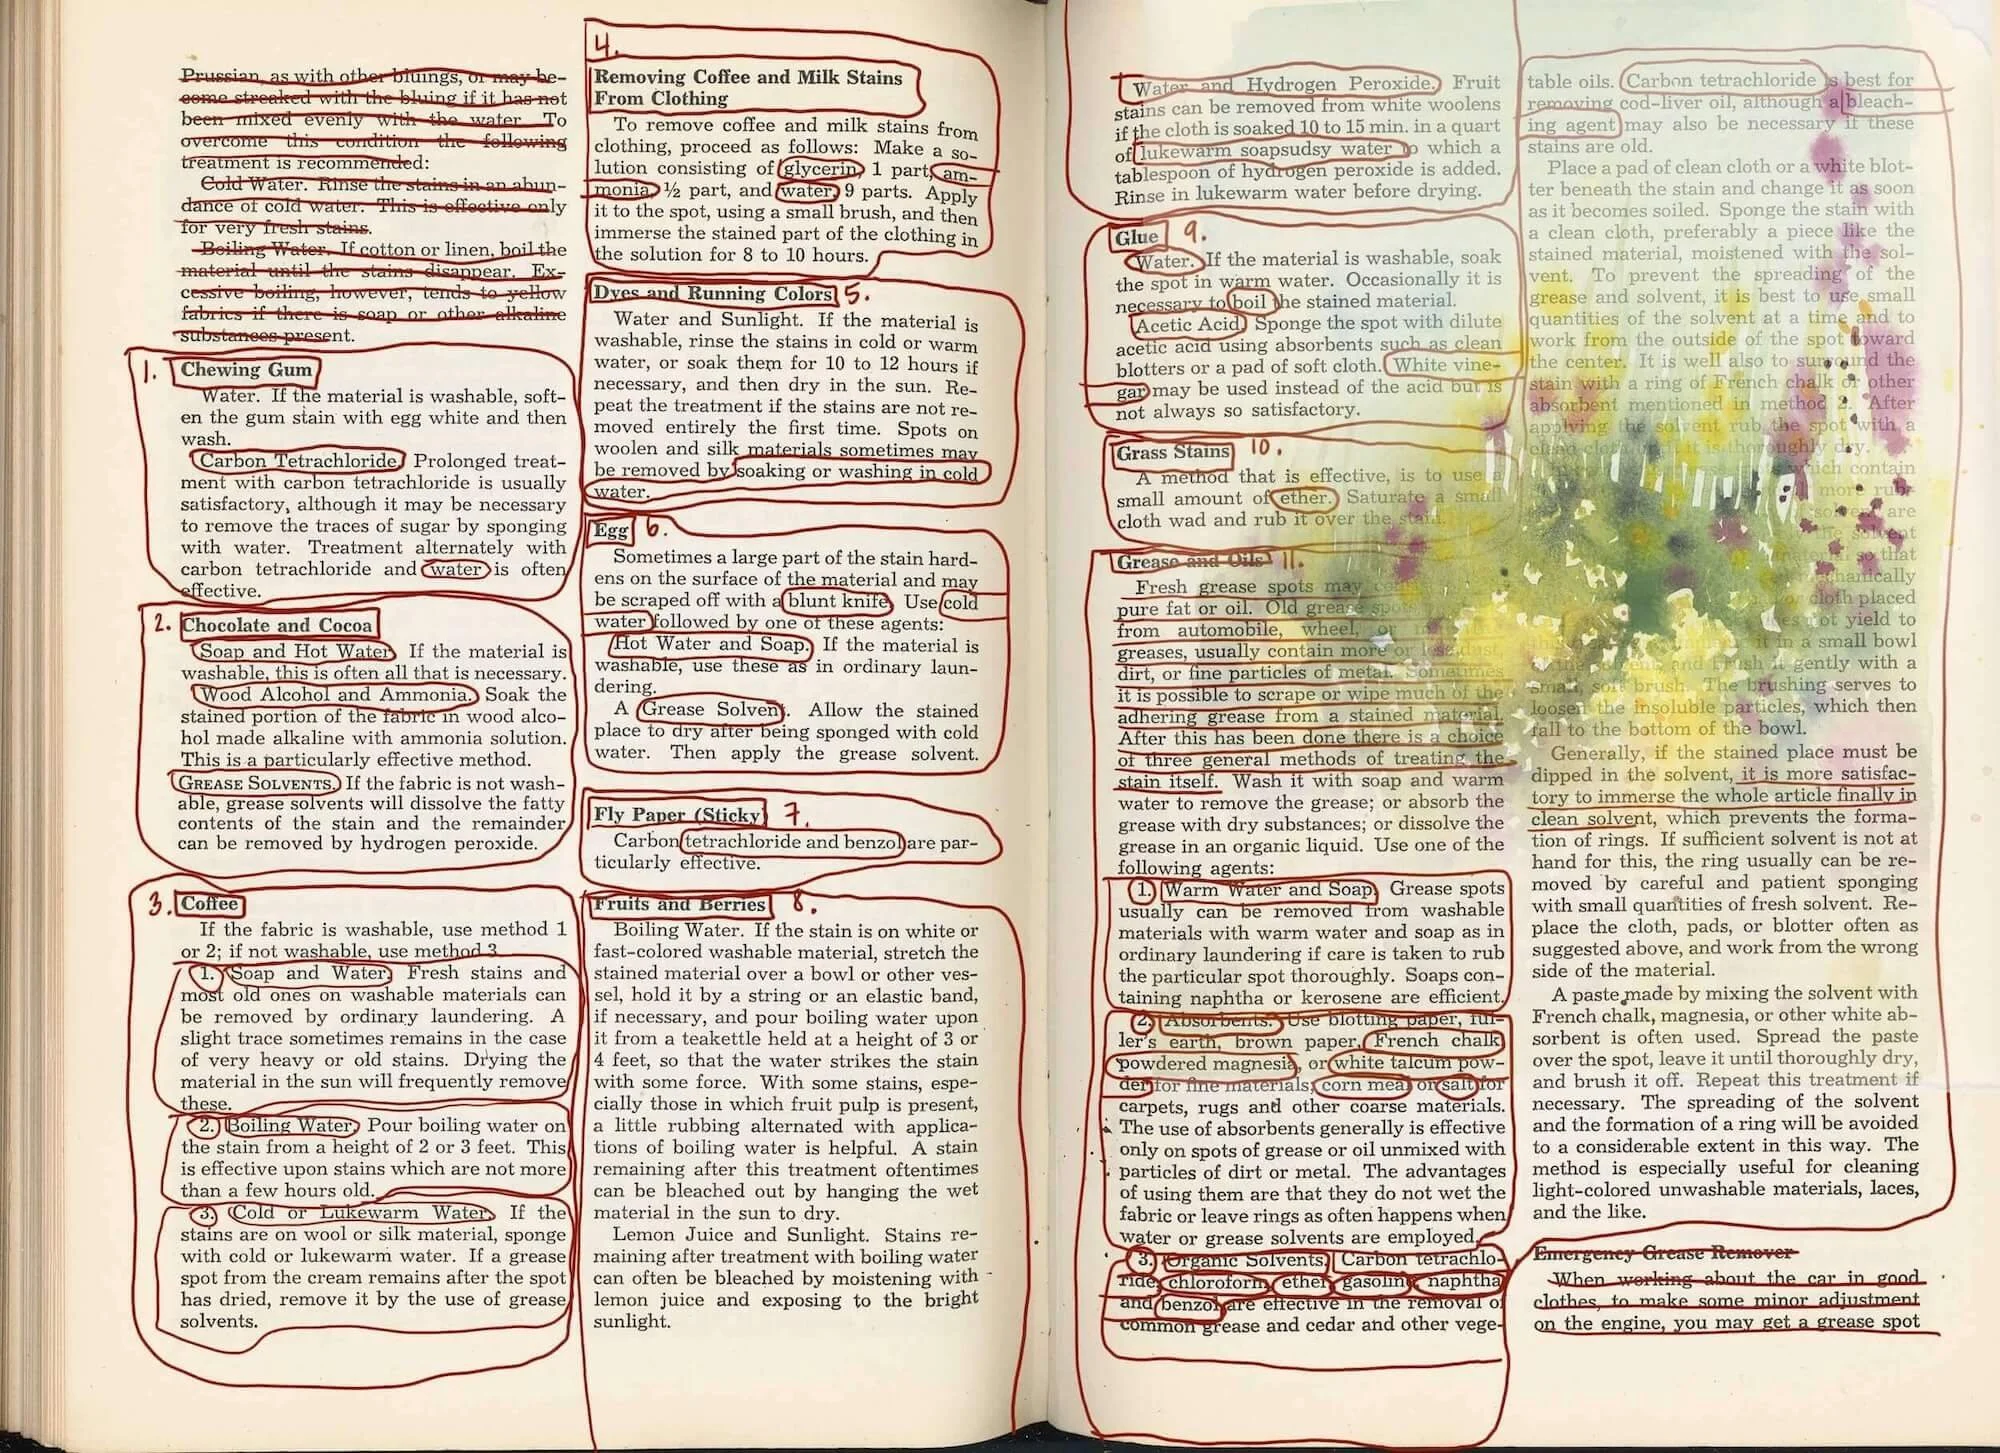 Prussian, as with other bluings, or may be-
come streaked with the bluing if it has not
been mixed evenly with the water. To
overcome this condition the following
treatment is recommended:
Cold Water. Rinse the stains in an abun-
dance of cold water. This is effective only
for very fresh stains.
Boiling Water. If cotton or linen, boil the
material until the stains disappear. Ex-
cessive boiling, however, tends to yellow
fabrics if there is soap or other alkaline
substances present.
1. Chewing Gum
Water. If the material is washable, soft-
en the gum stain with egg white and then
wash.
Carbon Tetrachloride. Prolonged treat-
ment with carbon tetrachloride is usually
satisfactory, although it may be necessary
to remove the traces of sugar by sponging
with water. Treatment alternately with
carbon tetrachloride and water is often
effective.
2. Chocolate and Cocoa
Soap and Hot Water. If the material is
washable, this is often all that is necessary.
Wood Alcohol and Ammonia. Soak the
stained portion of the fabric in wood alco-
hol made alkaline with ammonia solution.
This is a particularly effective method.
GREASE SOLVENTS. If the fabric is not wash-
able, grease solvents will dissolve the fatty
contents of the stain and the remainder
can be removed by hydrogen peroxide.
3. Coffee
If the fabric is washable, use method 1
or 2; if not washable, use method 3.
1. Soap and Water. Fresh stains and
most old ones on washable materials can
be removed by ordinary laundering. A
slight trace sometimes remains in the case
of very heavy or old stains. Drying the
material in the sun will frequently remove
these.
2. Boiling Water. Pour boiling water on
the stain from a height of 2 or 3 feet. This
is effective upon stains which are not more
than a few hours old.
3. Cold or Lukewarm Water. If the
stains are on wool or silk material, sponge
with cold or lukewarm water. If a grease
spot from the cream remains after the spot
has dried, remove it by the use of grease
solvents.
4.
Removing Coffee and Milk Stains
From Clothing
To remove coffee and milk stains from
clothing, proceed as follows: Make a so-
lution consisting of glycerin, 1 part, am-
monia, ½ part, and water, 9 parts. Apply
it to the spot, using a small brush, and then
immerse the stained part of the clothing in
the solution for 8 to 10 hours.
Dyes and Running Colors 5.
Water and Sunlight. If the material is
washable, rinse the stains in cold or warm
water, or soak them for 10 to 12 hours if
necessary, and then dry in the sun. Re-
peat the treatment if the stains are not re-
moved entirely the first time. Spots on
woolen and silk materials sometimes may
be removed by soaking or washing in cold
water.
Egg 6.
Sometimes a large part of the stain hard-
ens on the surface of the material and may
be scraped off with a blunt knife. Use cold
water followed by one of these agents:
Hot Water and Soap. If the material is
washable, use these as in ordinary laun-
dering.
A Grease Solvent. Allow the stained
place to dry after being sponged with cold
water. Then apply the grease solvent.
Fly Paper (Sticky) 7.
Carbon tetrachloride and benzol are par-
ticularly effective.
Fruits and Berries 8.
Boiling Water. If the stain is on white or
fast-colored washable material, stretch the
stained material over a bowl or other ves-
sel, hold it by a string or an elastic band,
if necessary, and pour boiling water upon
it from a teakettle held at a height of 3 or
4 feet, so that the water strikes the stain
with some force. With some stains, espe-
cially those in which fruit pulp is present,
a little rubbing alternated with applica-
tions of boiling water is helpful. A stain
remaining after this treatment oftentimes
can be bleached out by hanging the wet
material in the sun to dry.
Lemon Juice and Sunlight. Stains re-
maining after treatment with boiling water
can often be bleached by moistening with
lemon juice and exposing to the bright
sunlight.
Water and Hydrogen Peroxide. Fruit
stains can be removed from white woolens
if the cloth is soaked 10 to 15 min. in a quart
of lukewarm soapsudsy water to which a
tablespoon of hydrogen peroxide is added.
Rinse in lukewarm water before drying.
Glue 9.
Water. If the material is washable, soak
the spot in warm water. Occasionally it is
necessary to boil the stained material.
Acetic Acid. Sponge the spot with dilute
acetic acid using absorbents such as clean
blotters or a pad of soft cloth. White vine-
gar may be used instead of the acid but is
not always so satisfactory.
Grass Stains 10.
A method that is effective, is to use a
small amount of ether. Saturate a small
cloth wad and rub it over the stain.
Grease and Oils 11.
Fresh grease spots may
pure fat or oil. Old grease spots
from automobile, wheel, or
greases, usually contain more or less dust,
dirt, or fine particles of metal. Sometimes
it is possible to scrape or wipe much of the
adhering grease from a stained material.
After this has been done there is a choice
of three general methods of treating the
stain itself. Wash it with soap and warm
water to remove the grease; or absorb the
grease with dry substances; or dissolve the
grease in an organic liquid. Use one of the
following agents:
1. Warm Water and Soap. Grease spots
usually can be removed from washable
materials with warm water and soap as in
ordinary laundering if care is taken to rub
the particular spot thoroughly. Soaps con-
taining naphtha or kerosene are efficient.
2. Absorbents. Use blotting paper, ful-
ler's earth, brown paper, French chalk
powdered magnesia, or white talcum pow-
der for fine materials; corn meal or salt for
carpets, rugs and other coarse materials.
The use of absorbents generally is effective
only on spots of grease or oil unmixed with
particles of dirt or metal. The advantages
of using them are that they do not wet the
fabric or leave rings as often happens when
water or grease solvents are employed.
3. Organic Solvents. Carbon tetrachlo-
ride, chloroform, ether, gasoline, naphtha
and benzol are effective in the removal of
common grease and cedar and other vege-
table oils. Carbon tetrachloride is best for
removing cod-liver oil, although a bleach-
ing agent may also be necessary if these
stains are old.
Place a pad of clean cloth or a white blot-
ter beneath the stain and change it as soon
as it becomes soiled. Sponge the stain with
a clean cloth, preferably a piece like the
stained material, moistened with the sol-
vent. To prevent the spreading of the
grease and solvent, it is best to use small
quantities of the solvent at a time and to
work from the outside of the spot toward
the center. It is well also to surround the
stain with a ring of French chalk or other
absorbent mentioned in method 2. After
applying the solvent rub the spot with a
clean cloth until it is thoroughly dry.
which contain
more rub-
solvent are
the solvent
material so that
mechanically
or cloth placed
does not yield to
it in a small bowl
of the solvent and brush it gently with a
small, soft brush. The brushing serves to
loosen the insoluble particles, which then
fall to the bottom of the bowl.
Generally, if the stained place must be
dipped in the solvent, it is more satisfac-
tory to immerse the whole article finally in
clean solvent, which prevents the forma-
tion of rings. If sufficient solvent is not at
hand for this, the ring usually can be re-
moved by careful and patient sponging
with small quantities of fresh solvent. Re-
place the cloth, pads, or blotter often as
suggested above, and work from the wrong
side of the material.
A paste made by mixing the solvent with
French chalk, magnesia, or other white ab-
sorbent is often used. Spread the paste
over the spot, leave it until thoroughly dry,
and brush it off. Repeat this treatment if
necessary. The spreading of the solvent
and the formation of a ring will be avoided
to a considerable extent in this way. The
method is especially useful for cleaning
light-colored unwashable materials, laces,
and the like.
Emergency Grease Remover
When working about the car in good
clothes, to make some minor adjustment
on the engine, you may get a grease spot